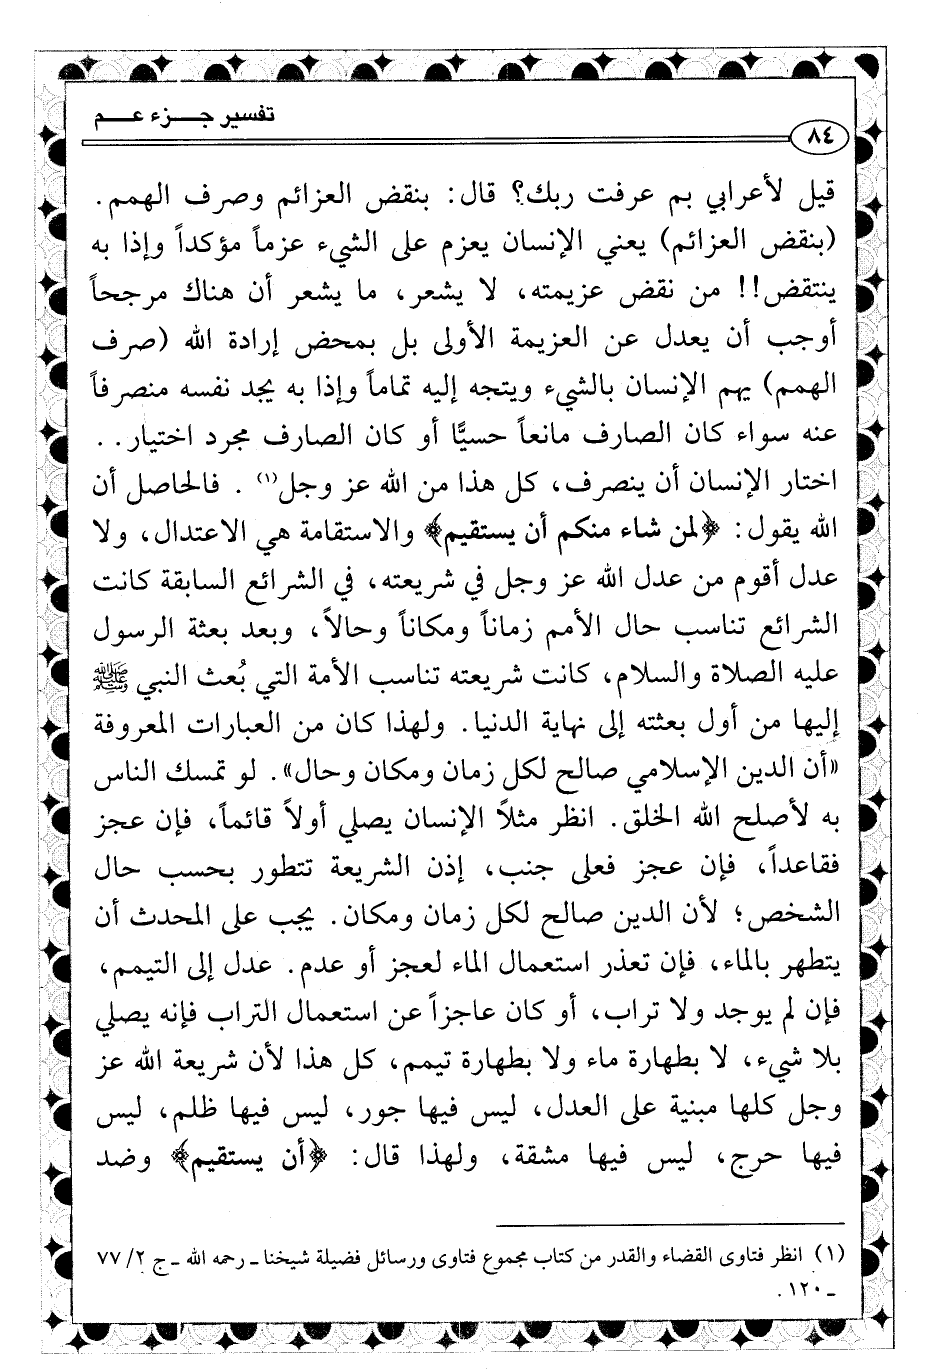 تفسير جـزء عـم
٨٤
قيل لأعرابي بم عرفت ربك؟ قال: بنقض العزائم وصرف الهمم.
(بنقض العزائم) يعني الإنسان يعزم على الشيء عزماً مؤكداً وإذا به
ينتقض!! من نقض عزيمته، لا يشعر، ما يشعر أن هناك مرجحاً
أوجب أن يعدل عن العزيمة الأولى بل بمحض إرادة الله (صرف
الهمم) يهم الإنسان بالشيء ويتجه إليه تماماً وإذا به يجد نفسه منصرفاً
عنه سواء كان الصارف مانعاً حسيًّا أو كان الصارف مجرد اختيار..
اختار الإنسان أن ينصرف، كل هذا من الله عز وجل(١). فالحاصل أن
الله يقول: ﴿لمن شاء منكم أن يستقيم﴾ والاستقامة هي الاعتدال، ولا
عدل أقوم من عدل الله عز وجل في شريعته، في الشرائع السابقة كانت
الشرائع تناسب حال الأمم زماناً ومكاناً وحالاً، وبعد بعثة الرسول
عليه الصلاة والسلام، كانت شريعته تناسب الأمة التي بُعث النبي ﷺ
إليها من أول بعثته إلى نهاية الدنيا. ولهذا كان من العبارات المعروفة
«أن الدين الإسلامي صالح لكل زمان ومكان وحال». لو تمسك الناس
به لأصلح الله الخلق. انظر مثلاً الإنسان يصلي أولاً قائماً، فإن عجز
فقاعداً، فإن عجز فعلى جنب، إذن الشريعة تتطور بحسب حال
الشخص؛ لأن الدين صالح لكل زمان ومكان. يجب على المحدث أن
يتطهر بالماء، فإن تعذر استعمال الماء لعجز أو عدم. عدل إلى التيمم،
فإن لم يوجد ولا تراب، أو كان عاجزاً عن استعمال التراب فإنه يصلي
بلا شيء، لا بطهارة ماء ولا بطهارة تيمم، كل هذا لأن شريعة الله عز
وجل كلها مبنية على العدل، ليس فيها جور، ليس فيها ظلم، ليس
فيها حرج، ليس فيها مشقة، ولهذا قال: ﴿أن يستقيم﴾ وضد
(١) انظر فتاوى القضاء والقدر من كتاب مجموع فتاوى ورسائل فضيلة شيخنا ـ رحمه الله ـ ج ٢/ ٧٧
ـ ١٢٠.